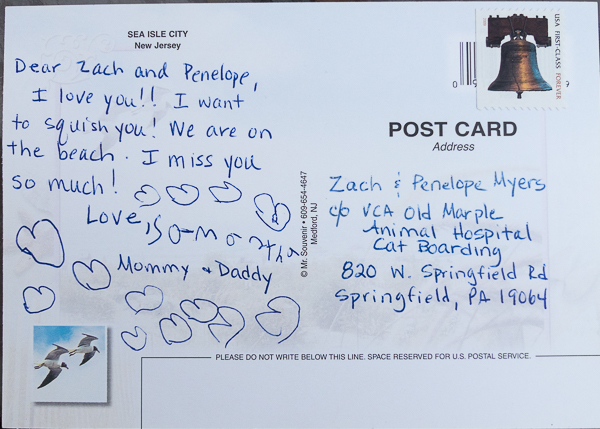 SEA ISLE CITY
New Jersey
Dear Zach and Penelope,
I love you!! I want
to squish you! We are on
the beach. I miss you
so much!
Love,
Mommy + Daddy
© Mr. Souvenir • 609-654-4647
Medford, NJ
USA FIRST-CLASS FOREVER
POST CARD
Address
Zach & Penelope Myers
c/o VCA Old Marple
Animal Hospital
Cat Boarding
820 W. Springfield Rd
Springfield, PA 19064
PLEASE DO NOT WRITE BELOW THIS LINE. SPACE RESERVED FOR U.S. POSTAL SERVICE.